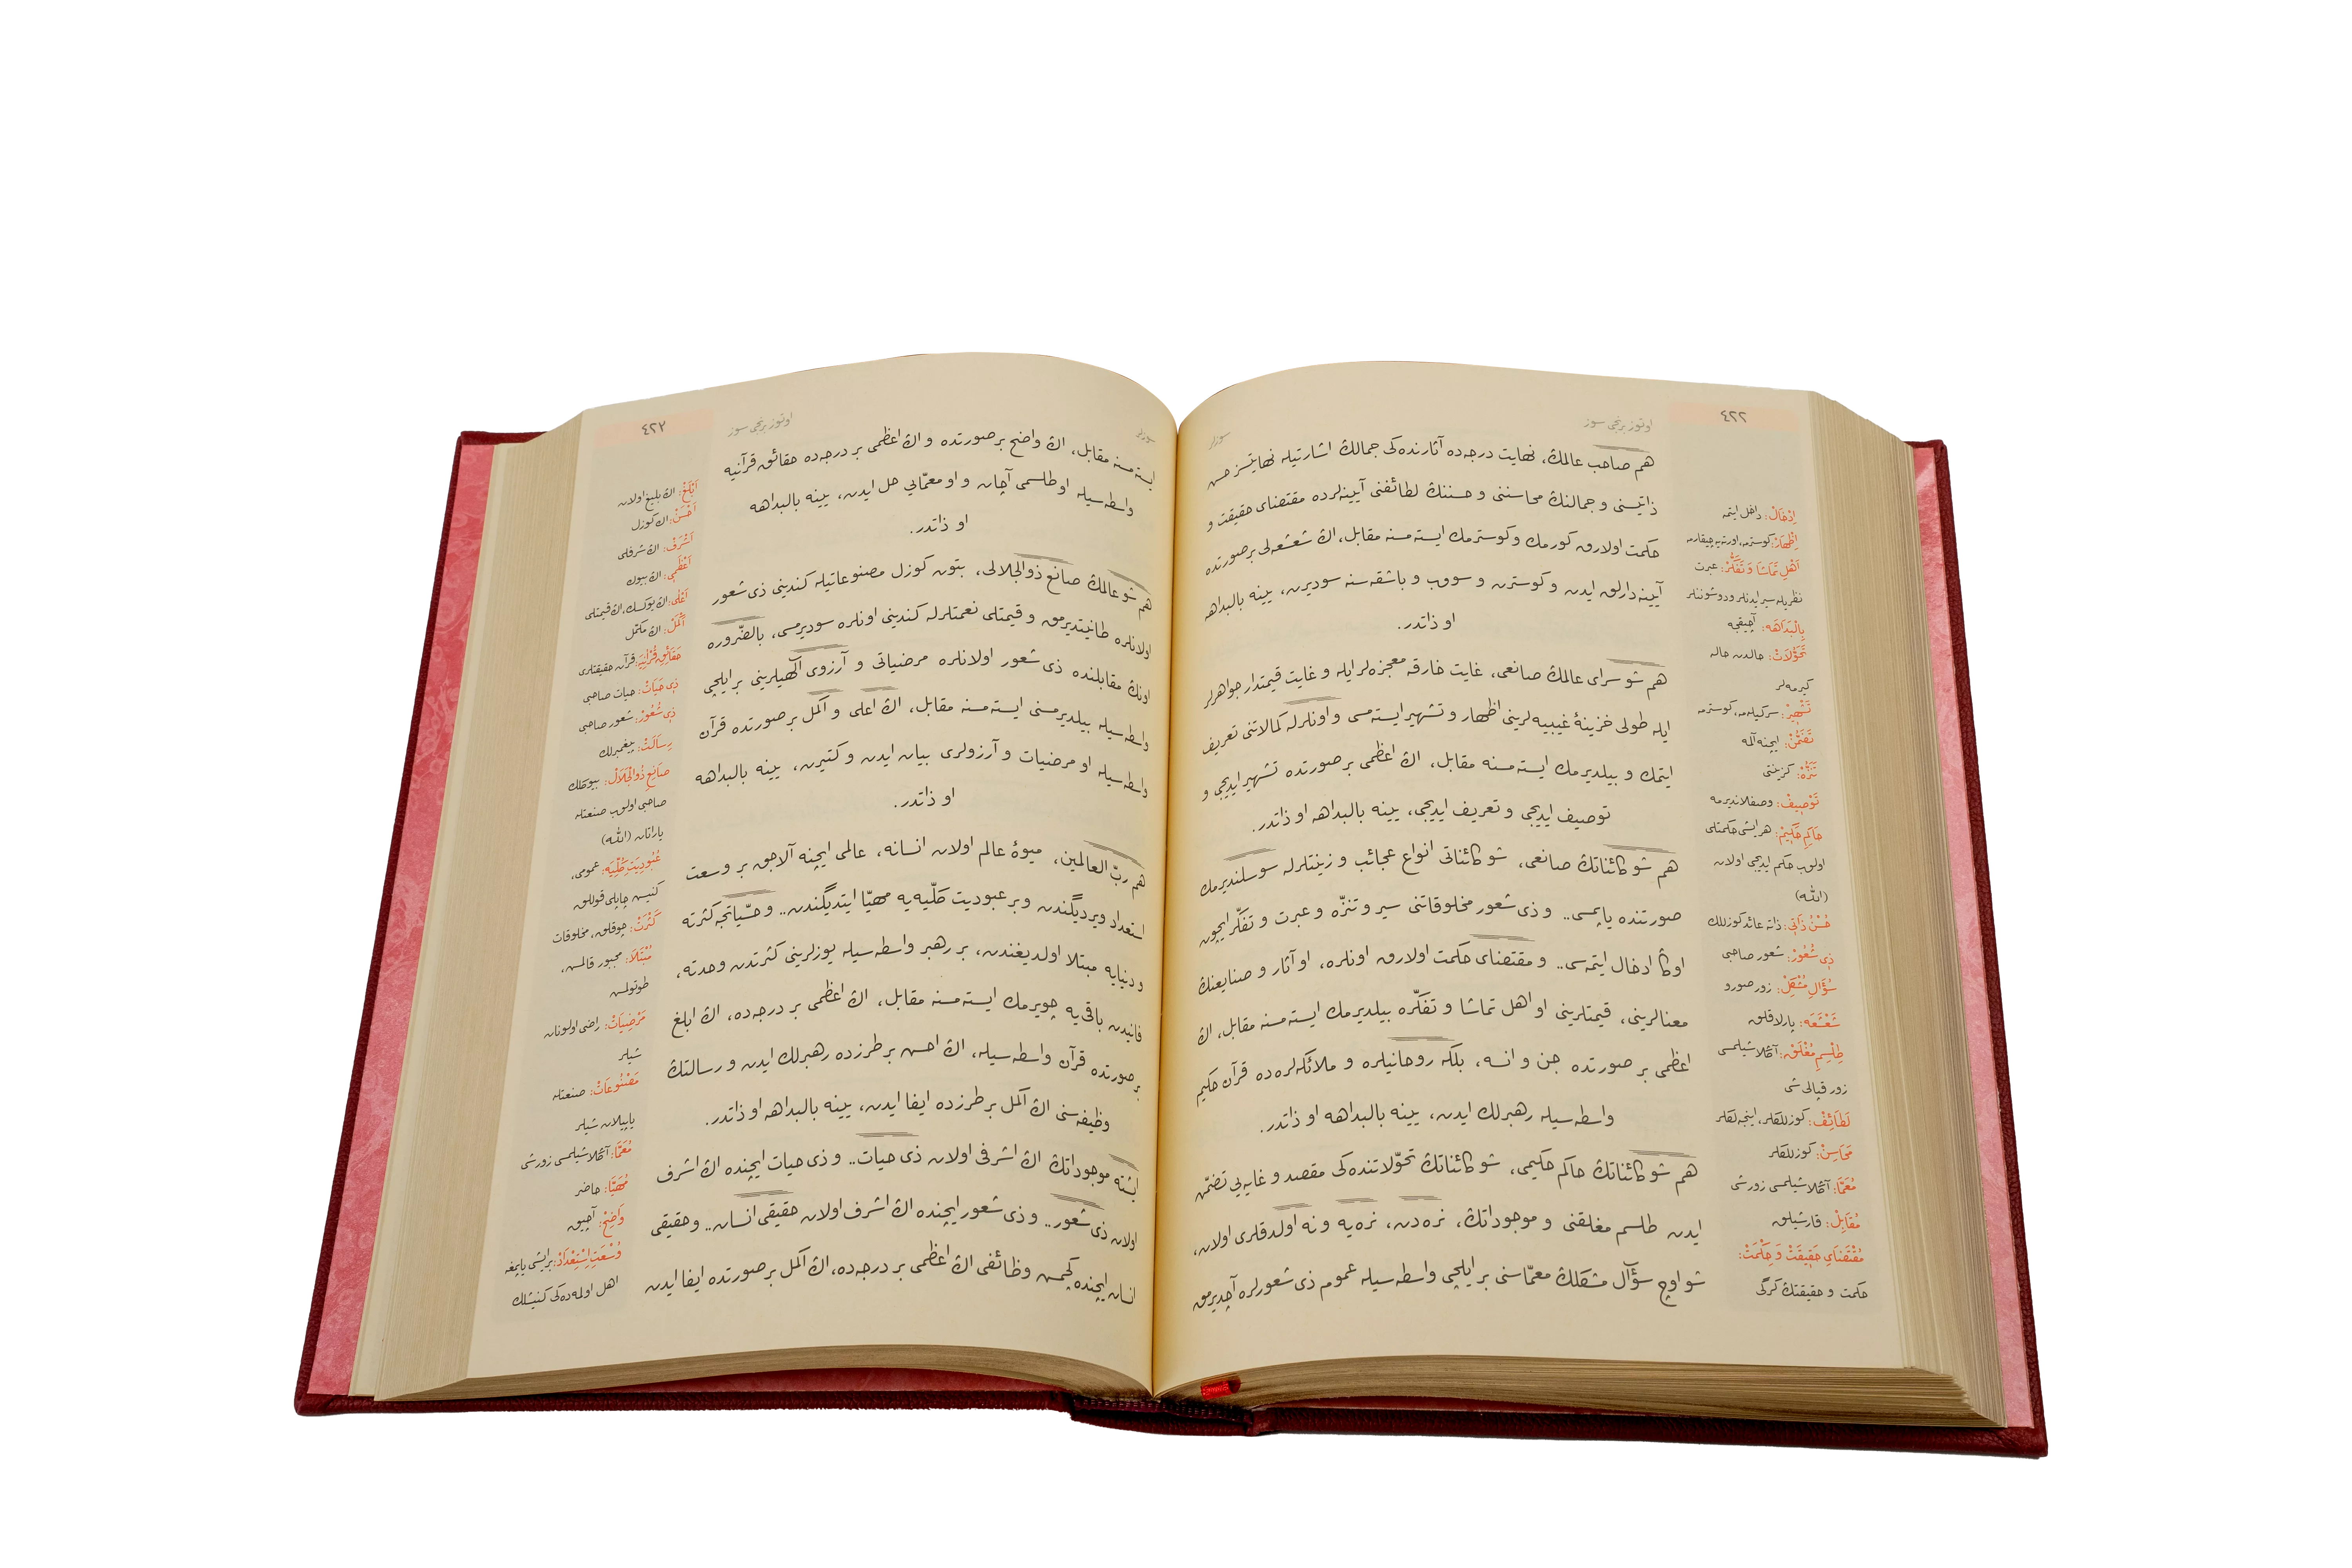 ٤٢٢
اوتوز برنجی سوز
سوزلر
هم صاحب عالمڭ، نهايت درجه‌ده آثارنده‌كی جمالڭ اشارتيله نهايتسز حسن
ذاتيسنی و جمالنڭ محاسننی و حسننڭ لطائفنی آيينه‌لرده مقتضای حقيقت و
حكمت اولارق كورمك و كوسترمك ايسته‌مسنه مقابل، اڭ شعشعه‌لی بر صورتده
آيينه‌دارلق ايدن و كوسترن و سووب و باشقه‌سنه سوديرن، يينه بالبداهه
او ذاتدر.
هم شو سرای عالمڭ صانعی، غايت خارقه معجزه‌لر ايله و غايت قيمتدار جواهرلر
ايله طولی خزينۀ غيبيه‌لرينی اظهار و تشهير ايسته‌مسی و اونلرله كمالاتنی تعريف
ايتمك و بيلديرمك ايسته‌مسنه مقابل، اڭ اعظمی بر صورتده تشهير ايديجی و
توصيف ايديجی و تعريف ايديجی، يينه بالبداهه او ذاتدر.
هم شو كائناتڭ صانعی، شو كائناتی انواع عجائب و زينتلرله سوسلنديرمك
صورتنده ياپمسی.. و ذی شعور مخلوقاتنی سير و تنزّه و عبرت و تفكّر ايچون
اوڭا ادخال ايتمه‌سی.. و مقتضای حكمت اولارق اونلره، او آثار و صنايعنڭ
معنالرينی، قيمتلرينی او اهل تماشا و تفكّره بيلديرمك ايسته‌مسنه مقابل، اڭ
اعظمی بر صورتده جن و انسه، بلكه روحانيلره و ملائكه‌لره ده قرآن حكيم
واسطه‌سيله رهبرلك ايدن، يينه بالبداهه او ذاتدر.
هم شو كائناتڭ حاكم حكيمی، شو كائناتڭ تحوّلاتنده‌كی مقصد و غايه‌يی تضمّن
ايدن طلسم مغلقنی و موجوداتڭ، نره‌دن، نره‌يه و نه اولدقلری اولان،
شو اوچ سؤال مشكلڭ معمّاسنی بر ايلچی واسطه‌سيله عموم ذی شعورلره آچديرمق
اِدْخَالْ: داخل ايتمه
اِظْهَارْ: كوسترمه، اورته‌يه چيقارمه
اَهْلِ تَمَاشَا وَ تَفَكُّرْ: عبرت
نظريله سير ايدنلر و دوشوننلر
بِالْبَدَاهَه: آچيقجه
تَحَوُّلَاتْ: حالدن حاله
كيرمه‌لر
تَشْهِيرْ: سركيله‌مه، كوسترمه
تَضَمُّنْ: ايچنه آلمه
تَنَزُّهْ: كزينتی
تَوْصِيفْ: وصفلانديرمه
حَاكِمِ حَكِيمْ: هر ايشی حكمتلی
اولوب حكم ايديجی اولان
(الله)
حُسْنُ ذَاتِی: ذاته عائد كوزللك
ذِی شُعُورْ: شعور صاحبی
سُؤَالِ مُشْكِلْ: زور صورو
شَعْشَعَه: پارلاقلق
طِلْسِمِ مُغْلَقْ: آڭلاشيلمسی
زور قپالی شی
لَطَائِفْ: كوزللكلر، اينجه‌لكلر
مَحَاسِنْ: كوزللكلر
مُعَمَّا: آڭلاشيلمسی زور شی
مُقَابِلْ: قارشيلق
مُقْتَضَایِ حَقِيقَتْ وَ حِكْمَتْ:
حكمت و حقيقتڭ كركی
٤٢٣
اوتوز برنجی سوز
سوزلر
ايسته‌مسنه مقابل، اڭ واضح بر صورتده و اڭ اعظمی بر درجه‌ده حقائق قرآنيه
واسطه‌سيله او طلسمی آچان و او معمّايی حل ايدن، يينه بالبداهه
او ذاتدر.
هم شو عالمڭ صانع ذوالجلالی، بتون كوزل مصنوعاتيله كندينی ذی شعور
اولانلره طانيتديرمق و قيمتلی نعمتلرله كندينی اونلره سوديرمسی، بالضّروره
اونڭ مقابلنده ذی شعور اولانلره مرضياتی و آرزوی الٰهيلرينی بر ايلچی
واسطه‌سيله بيلديرمسنی ايسته‌مسنه مقابل، اڭ اعلی و اكمل بر صورتده قرآن
واسطه‌سيله او مرضيات و آرزولری بيان ايدن و كتيرن، يينه بالبداهه
او ذاتدر.
هم ربّ العالمين، ميوۀ عالم اولان انسانه، عالمی ايچنه آلاجق بر وسعت
استعداد ويرديگندن و بر عبوديت كلّيه‌يه مهيّا ايتديگندن.. و حسّياتجه كثرته
و دنيايه مبتلا اولديغندن، بر رهبر واسطه‌سيله يوزلرينی كثرتدن وحدته،
فانيدن باقی‌يه چويرمك ايسته‌مسنه مقابل، اڭ اعظمی بر درجه‌ده، اڭ ابلغ
بر صورتده قرآن واسطه‌سيله، اڭ احسن بر طرزده رهبرلك ايدن و رسالتڭ
وظيفه‌سنی اڭ اكمل بر طرزده ايفا ايدن، يينه بالبداهه او ذاتدر.
ايشته موجوداتڭ اڭ اشرفی اولان ذی حيات.. و ذی حيات ايچنده اڭ اشرف
اولان ذی شعور.. و ذی شعور ايچنده اڭ اشرف اولان حقيقی انسان.. و حقيقی
انسان ايچنده كچمش وظائفی اڭ اعظمی بر درجه‌ده، اڭ اكمل بر صورتده ايفا ايدن
اَبْلَغْ: اڭ بليغ اولان
اَحْسَنْ: اڭ كوزل
اَشْرَفْ: اڭ شرفلی
اَعْظَمِی: اڭ بيوك
اَعْلٰی: اڭ يوكسك، اڭ قيمتلی
اَكْمَلْ: اڭ مكمّل
حَقَائِقِ قُرْآنِيَه: قرآن حقيقتلری
ذِی حَيَاتْ: حيات صاحبی
ذِی شُعُورْ: شعور صاحبی
رِسَالَتْ: پيغمبرلك
صَانِعِ ذُوالْجَلَالْ: بيوكلك
صاحبی اولوب صنعتله
ياراتان (الله)
عُبُودِيَتِ كُلِّيَه: عمومی،
كنيش چاپلی قوللق
كَثْرَتْ: چوقلق، مخلوقات
مُبْتَلَا: مجبور قالمش،
طوتولمش
مَرْضِيَاتْ: راضی اولونان
شيلر
مَصْنُوعَاتْ: صنعتله
ياپيلان شيلر
مُعَمَّا: آڭلاشيلمسی زور شی
مُهَيَّا: حاضر
وَاضِحْ: آچيق
وُسْعَتِ اِسْتِعْدَادْ: بر ايشی ياپمغه
اهل اولمه‌ده‌كی كنيشلك